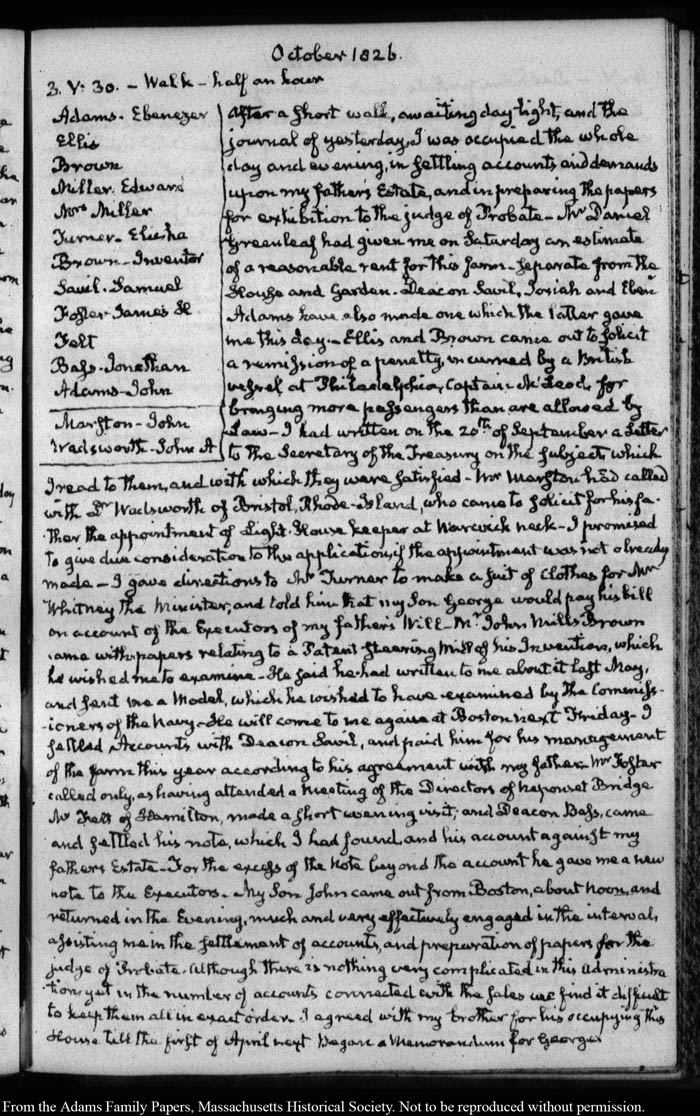 October 1826.
3. V: 30. - Walk - half an hour
Adams - Ebenezer
Ellis
Brown
Miller. Edward
Mrs. Miller
Turner - Elisha
Brown - Inventor
Savil. Samuel
Foster James H
Felt
Bass - Jonathan
Adams - John
Marston - John
Wadsworth - John A
After a short walk, awaiting day-light, and the
journal of yesterday, I was occupied the whole
day and evening, in settling accounts, and demands
upon my fathers Estate, and in preparing the papers
for exhibition to the judge of Probate - Mr Daniel
Greenleaf had given me on Saturday an estimate
of a reasonable rent for this farm - separate from the
House and Garden. Deacon Savil, Josiah and Eben
Adams have also made one which the latter gave
me this day - Ellis and Brown came out to solicit
a remission of a penalty, incurred by a British
vessel at Philadelphia, Captain McLeod, for
bringing more passengers than are allowed by
Law - I had written on the 20th of September a Letter
to the Secretary of the Treasury on the subject, which
I read to them, and with which they were satisfied - Mr Marston had called
with Dr Wadsworth of Bristol, Rhode-Island, who came to solicit for his fa-
ther the appointment of Light-House keeper at Warwick neck - I promised
to give due consideration to the application, if the appointment was not already
made - I gave directions to Mr Turner to make a suit of clothes for Mr
Whitney the Minister, and told him that my Son George would pay his bill
on account of the Executors of my father's Will - Mr John Mills Brown
came with papers relating to a Patent steering Mill of his Invention, which
he wished me to examine - He said he had written to me about it last May,
and sent me a Model, which he wished to have examined by the Commiss-
ioners of the Navy - He will come to me again at Boston next Friday - I
settled Accounts with Deacon Savil, and paid him for his management
of the farm this year according to his agreement with my father. Mr Foster
called only, as having attended a meeting of the Directors of Neponset Bridge
Mr Felt of Hamilton, made a short evening visit; and Deacon Bass, came
and settled his note, which I had found, and his account against my
fathers Estate - For the excess of the note beyond the account he gave me a new
note to the Executors. My Son John came out from Boston, about noon, and
returned in the Evening, much and very effectively engaged in the interval,
assisting me in the settlement of accounts, and preparation of papers for the
judge of Probate. Although there is nothing very complicated in this Administra
tion, yet in the number of accounts connected with the sales we find it difficult
to keep them all in exact order. I agreed with my brother for his occupying this
House till the first of April next Began a Memorandum for George
From the Adams Family Papers, Massachusetts Historical Society. Not to be reproduced without permission.